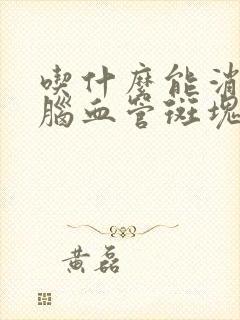 喫什麼能消
腦血管斑塊
黄磊